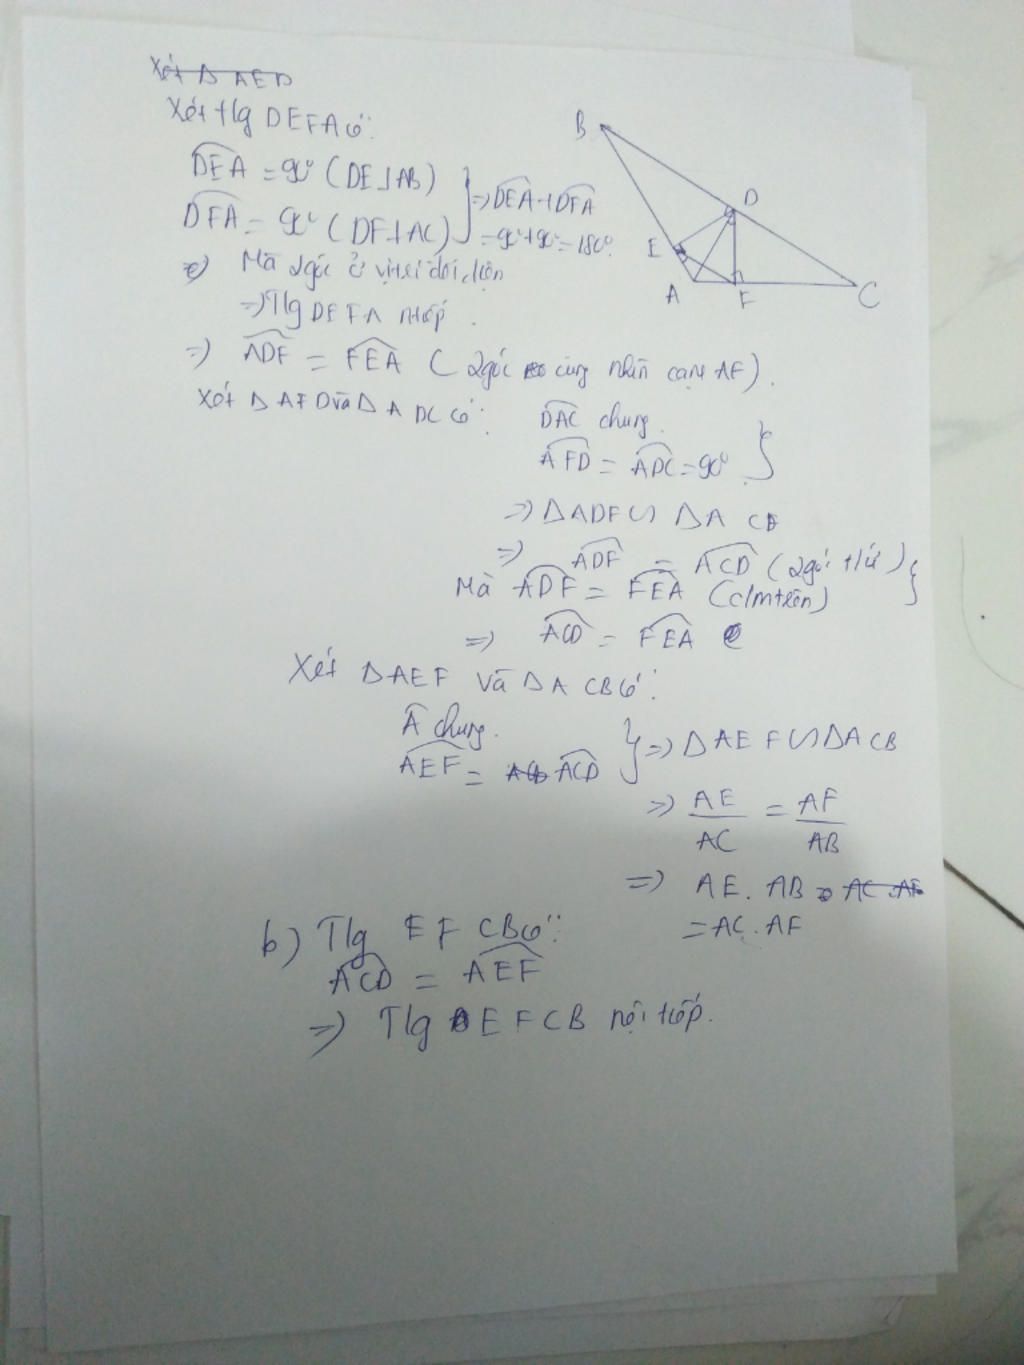 Xét Δ AED
Xét tlg DEFA có:
DEA = 90° (DE⊥AB)
DFA = 90° (DF⊥AC)
} => DEA + DFA
= 90° + 90° = 180°.
Mà 2 góc ở vị trí đối diện
=> Tlg DEFA ntiếp.
=> ADF = FEA ( 2 góc cùng nhìn cạnh AF).
Xét Δ AFD và Δ ADC có:
DAC chung.
AFD = ADC = 90° }
=> ΔADF ∽ ΔA
=> ADF = ACD (2 góc t/ứ) }
Mà ADF = FEA (c/m trên)
=> ACD = FEA
Xét ΔAEF và ΔACB có:
A chung.
AEF = ACD } => ΔAEF ∽ ΔACB
=> AE/AC = AF/AB
=> AE. AB = AC.AF
= AC. AF
b) Tlg EFCB có:
ACD = AEF
=> Tlg EFCB nội tiếp.
B
D
E
A
F
C